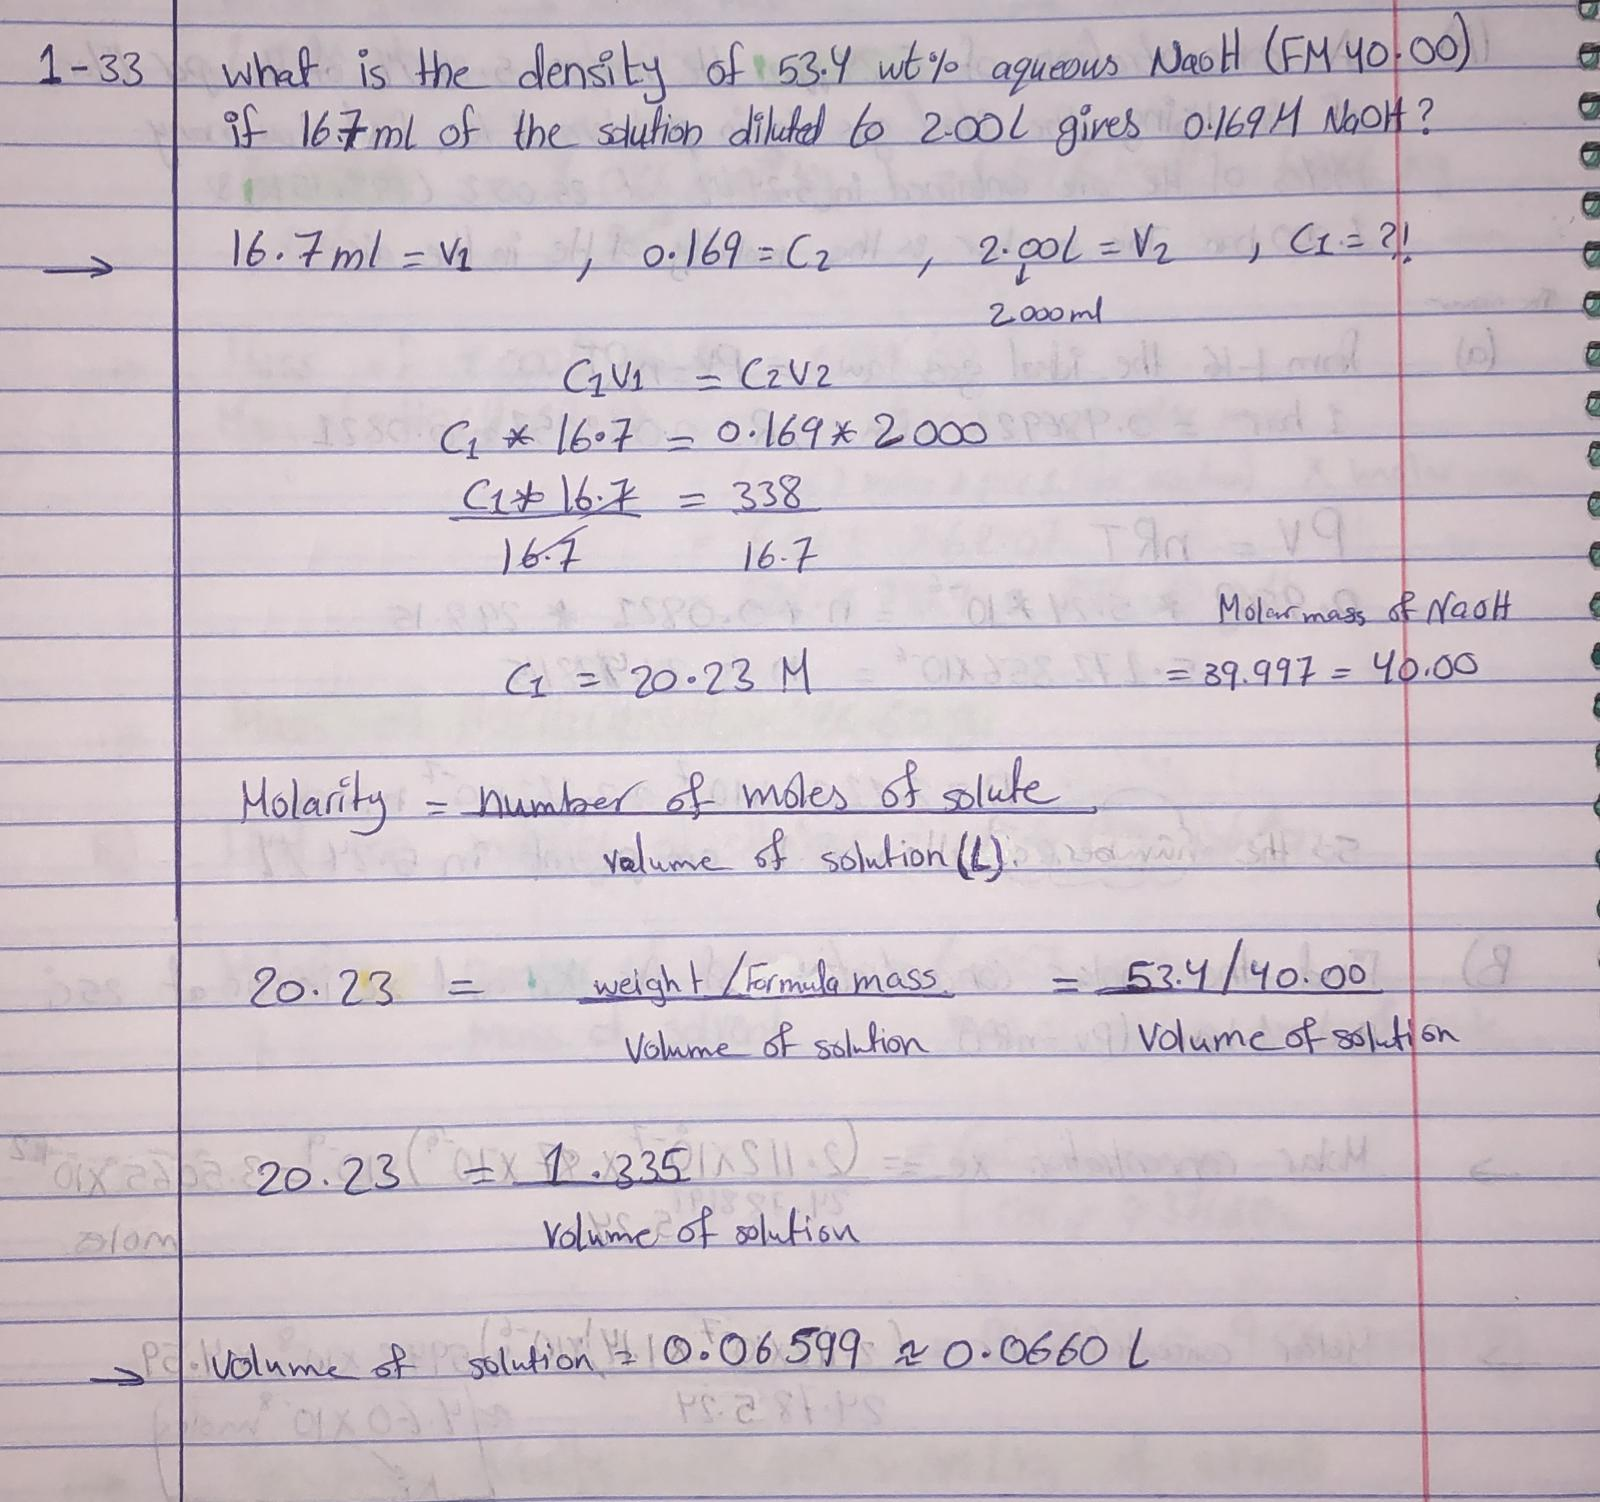 1-33 what is the density of 53.4 wt% aqueous NaOH (FM 40.00)
if 16.7 ml of the solution diluted to 2.00L gives 0.169 M NaOH?
→ 16.7 ml = V1 , 0.169 = C2 , 2.00L = V2 , C1 = ?!
↓
2000ml
C1V1 = C2V2
C1 * 16.7 = 0.169 * 2000
C1 * 16.7 = 338
16.7 16.7
Molar mass of NaOH
C1 = 20.23 M = 39.997 = 40.00
Molarity = number of moles of solute
volume of solution (L).
20.23 = weight / Formula mass = 53.4 / 40.00
Volume of solution Volume of solution
20.23 = 1.335
Volume of solution
→ Volume of solution = 0.06599 ≈ 0.0660 L